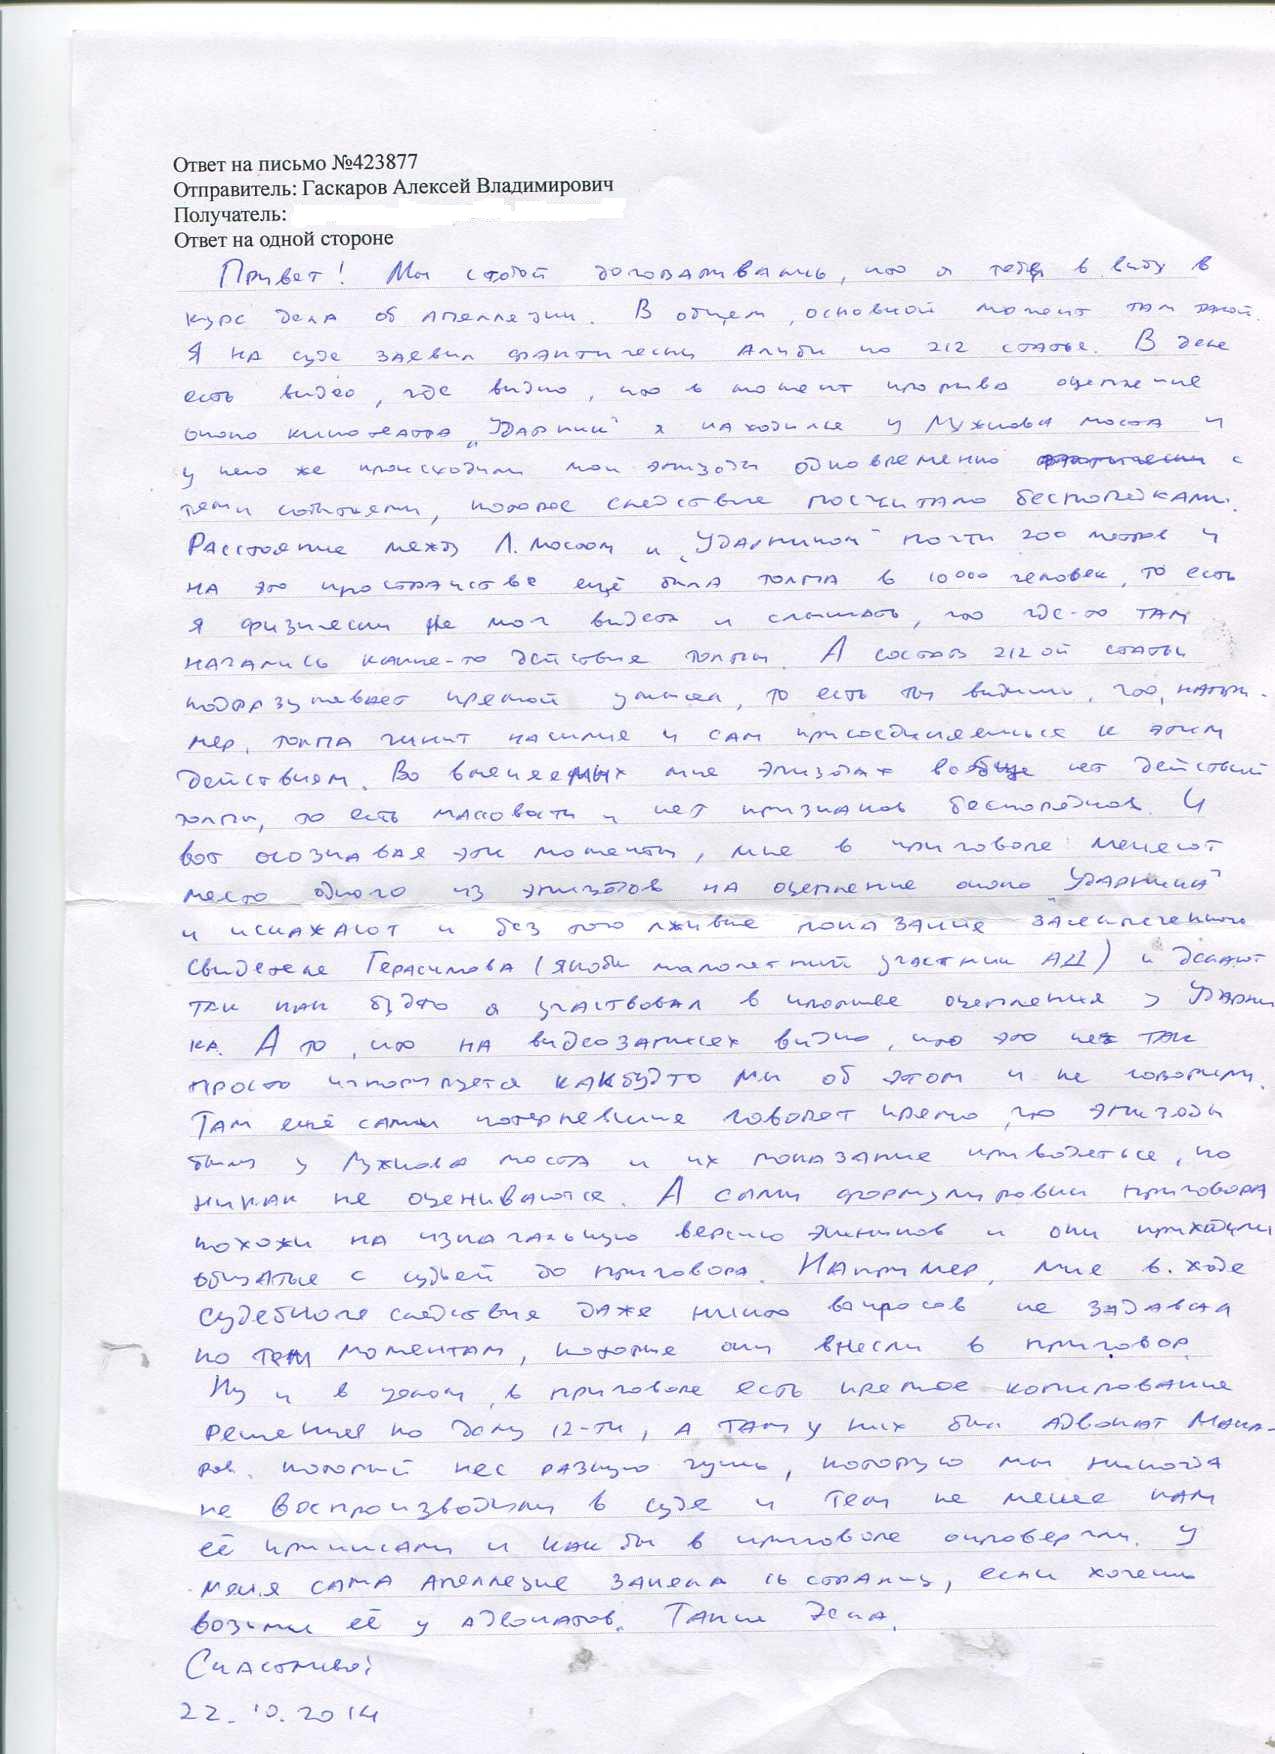 Ответ на письмо №423877
Отправитель: Гаскаров Алексей Владимирович
Получатель:
Ответ на одной стороне
Привет! Мы с тобой договаривались, что я тебя в веду в
курс дела об апелляции. В общем, основной момент там такой.
Я на суде заявил фактически алиби по 212 статье. В деле
есть видео, где видно, что в момент прорыва оцепление
около кинотеатра "Ударник" я находился у Лужкова моста и
у него же происходили мои эпизоды одновременно с
теми событиями, которое следствие посчитало беспорядками.
Расстояние между Л.мостом и "Ударником" почти 200 метров и
на это пространстве ещё была толпа в 10000 человек, то есть
я физически не мог видеть и слышать, что где-то там
начались какие-то действия толпы. А состав 212ой статьи
подразумевает прямой умысел, то есть ты видишь, что, напри-
мер, толпа чинит насилие и сам присоединяешься к этим
действиям. Во вменяемых мне эпизодах вообще нет действий
толпы, то есть массовости и нет признаков беспорядков. И
вот осознавая эти моменты, мне в приговоре меняют
место одного из эпизодов на оцепление около "Ударника"
и искажают и без того лживые показание засекреченного
свидетеля Герасимова (якобы малолетний участник АД) и делают
так как будто я участвовал в прорыве оцепления у Ударни
ка. А то, что на видеозаписях видно, что это не так
просто игнорируется как будто мы об этом и не говорили.
Там ещё сами потерпевшие говорят прямо, что эпизоды
были у Лужкова моста и их показание приводяться, но
никак не оцениваются. А сами формулировки приговора
похожи на изначальную версию эшников и они приходили
общаться с судьей до приговора. Например, мне в ходе
судебного следствия даже никто вопросов не задавал
по тем моментам, которые они внесли в приговор.
Ну и в целом, в приговоре есть прямое копирование
решения по делу 12-ти, а там у них был адвокат Мака-
ров, который нес разную чушь, которую мы никогда
не воспроизводили в суде и тем не менее нам
её приписали и как бы в приговоре опровергли. У
меня сама апелляция заняла 16 страниц, если хочешь
возьми её у адвокатов. Такие дела.
Счастливо!
22.10.2014